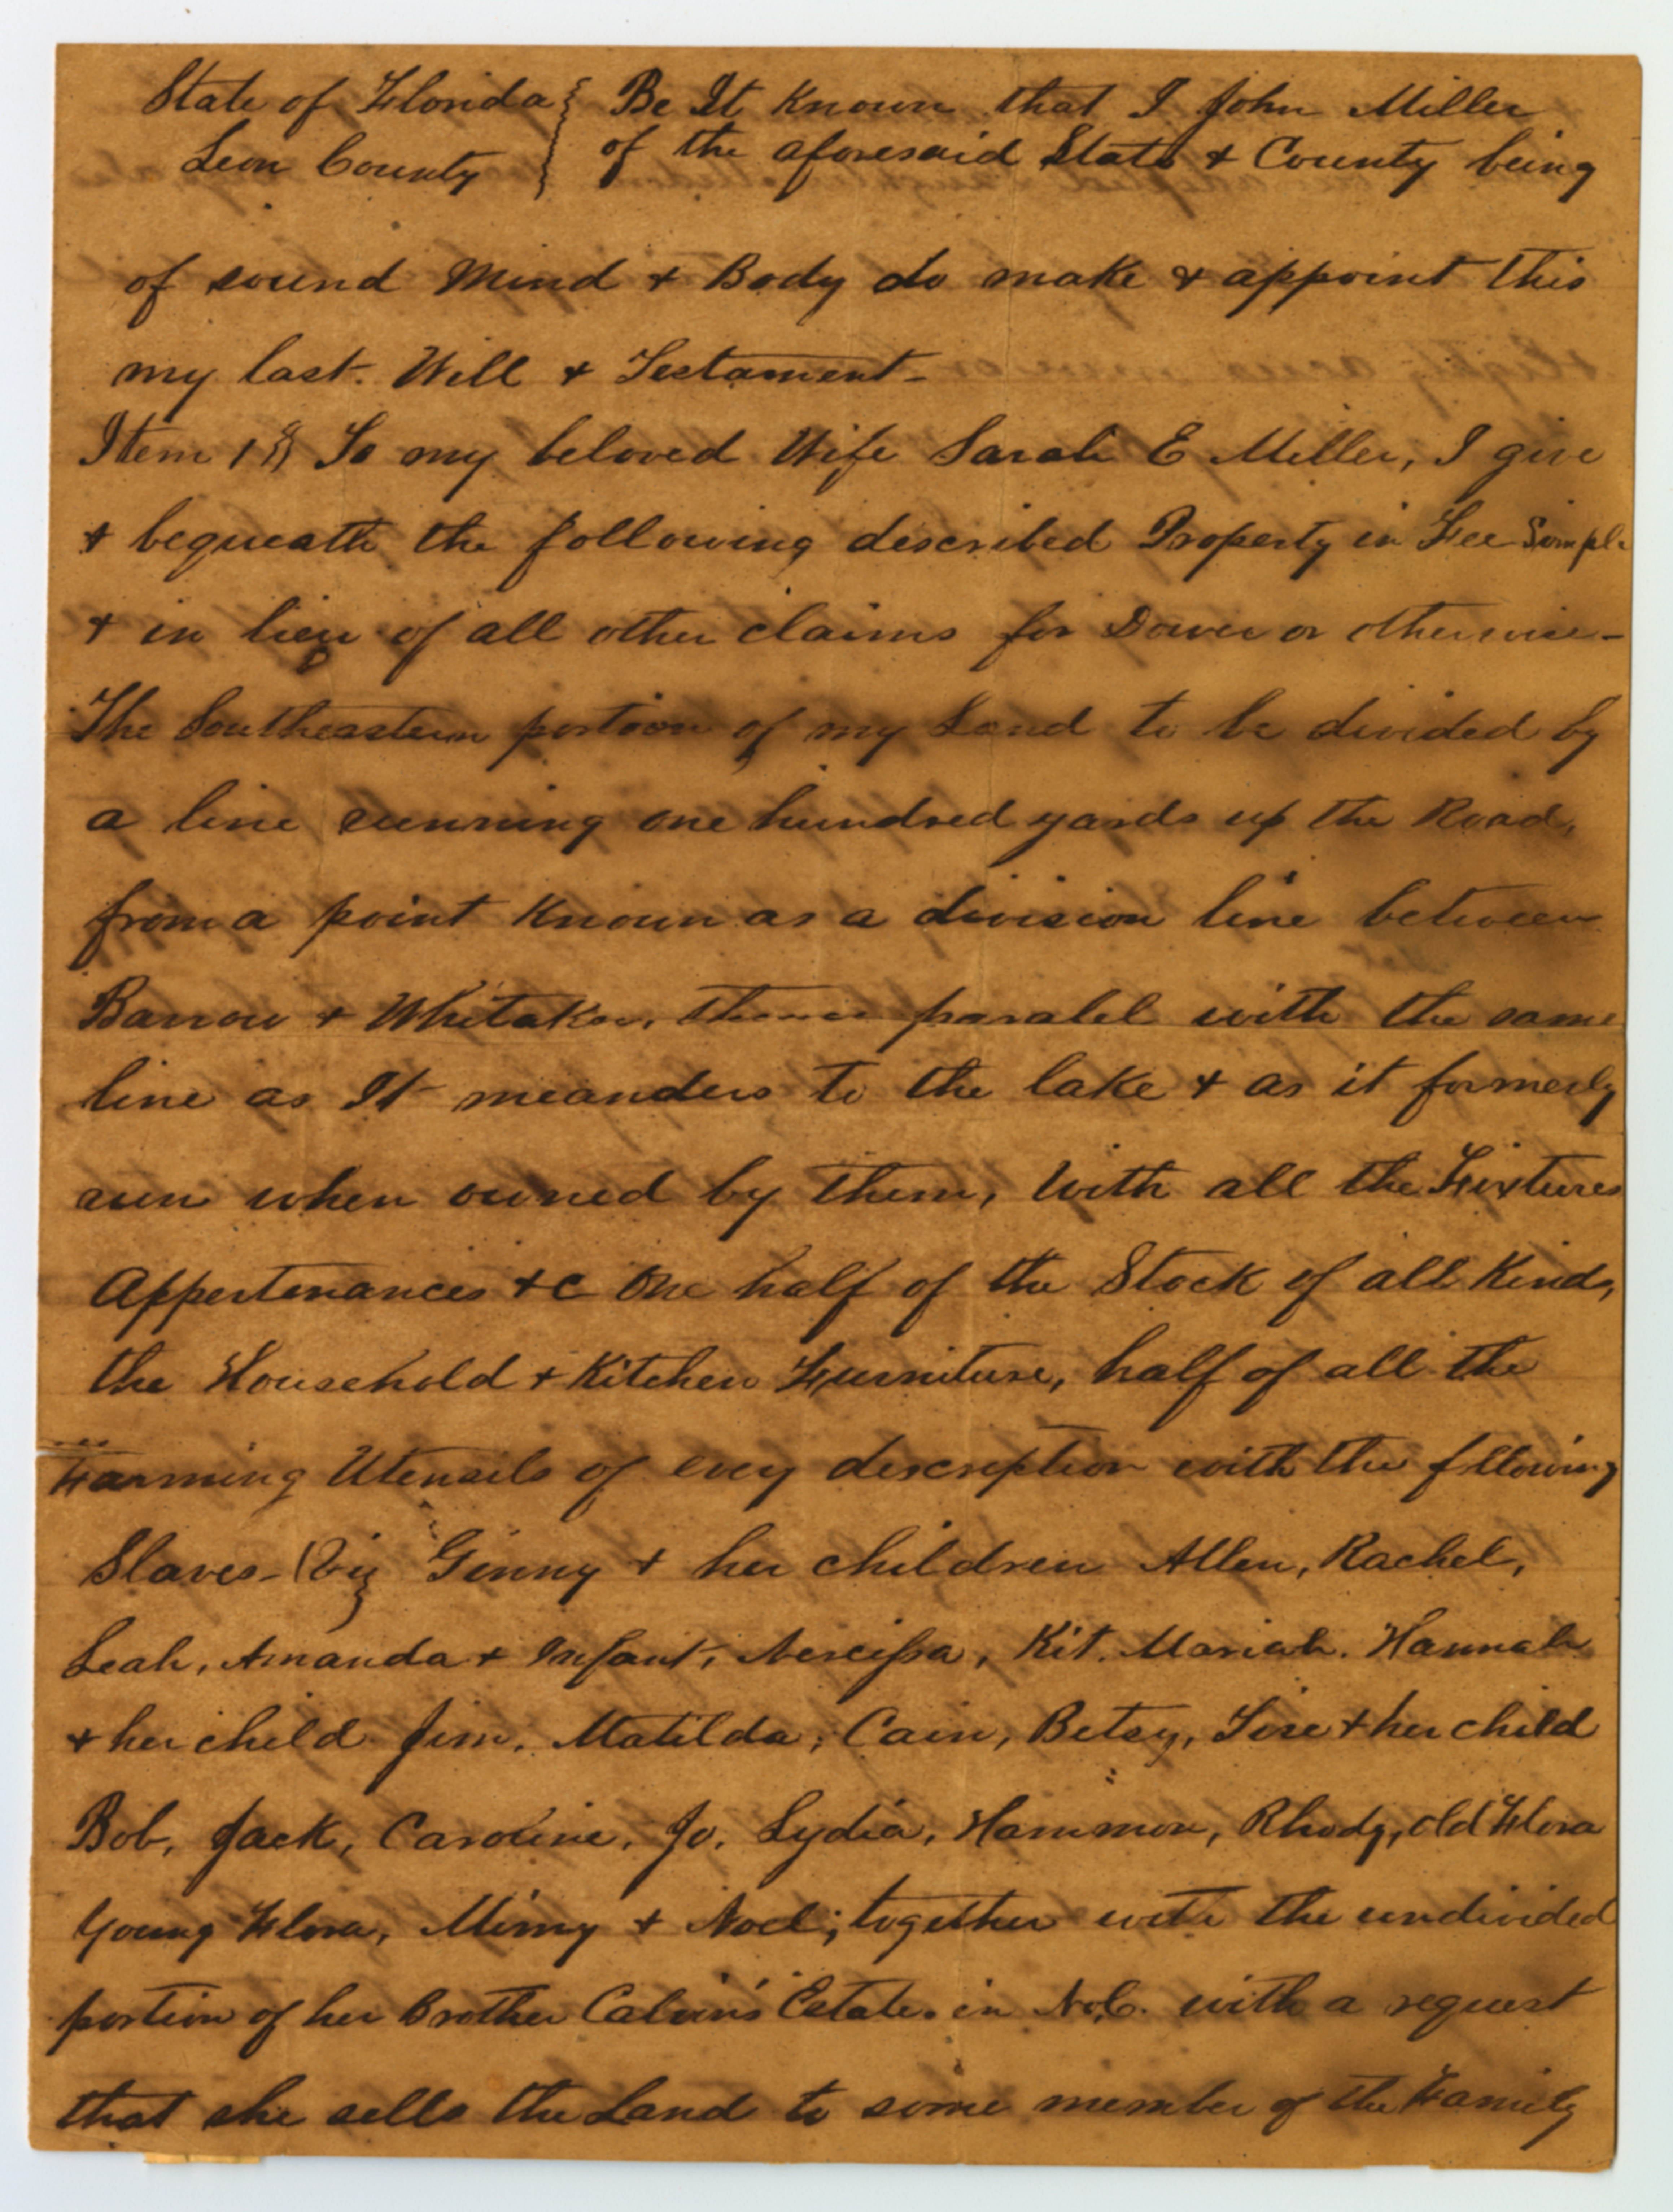 State of Florida } Be It Known that I John Miller
Leon County } of the aforesaid State + County being
of sound Mind + Body do make + appoint this
my last. Will + Testament-
Item 1st To my beloved Wife Sarah E Miller, I give
+ bequeath the following described Property in Fee Simple
+ in lieu of all other claims for Dower or otherwise-
The Southeastern portion of my Land to be divided by
a line running one hundred yards up the Road,
from a point Known as a division line between
Barrow + Whitaker, thence paralel with the same
line as It meanders to the lake + as it formerly
run when owned by them, with all the Fixtures
Appertenances +c One half of the Stock of all Kinds,
the Household + Kitchen Furniture, half of all the
Farming Utensils of evey description with the fllowing
Slaves- (Viz Ginny + her children Allen, Rachel,
Leah, Amanda + Infant, Nercissa, Kit. Mariah. Hannah
+ her child Jim, Matilda, Cain, Betsy, + her child
Bob, Jack, Caroline, Jo, Lydia, Hammon, Rhody, old Flora
Young Flora, Mimy + Noel; together with the undivided
portion of her Brother Calvin's Estate. in No.C. with a request
that she sells the Land to some member of the Family